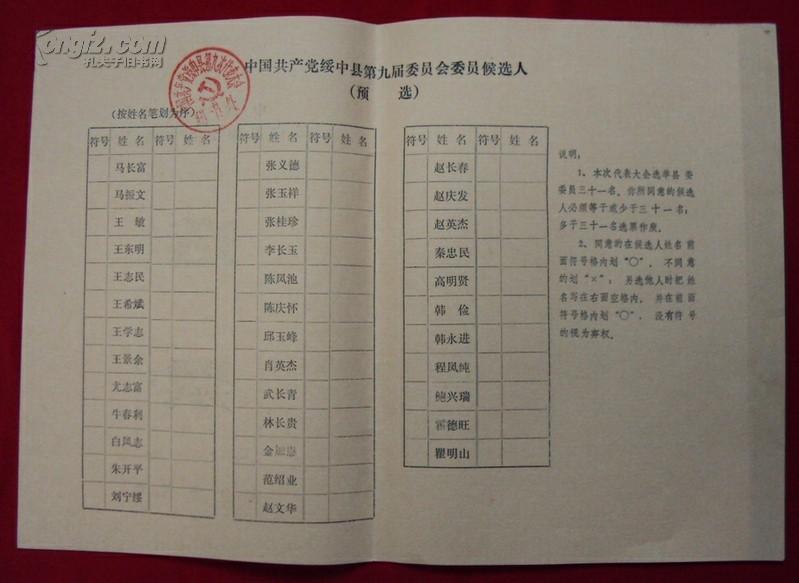 kongfz.com
孔夫子旧书网
中国共产党绥中县第九届委员会委员候选人
（预 选）
（按姓名笔划为序）
符号 姓名 符号 姓名
马长富
马振文
王 敏
王东明
王志民
王希斌
王学志
王景余
尤志富
牛春利
白凤志
朱开平
刘宁绥
符号 姓名 符号 姓名
张义德
张玉祥
张桂珍
李长玉
陈凤池
陈庆怀
邱玉峰
肖英杰
武长青
林长贵
范绍业
赵文华
符号 姓名 符号 姓名
赵长春
赵庆发
赵英杰
秦忠民
高明贤
韩 俭
韩永进
程凤纯
鲍兴瑞
霍德旺
瞿明山
说明：
1、本次代表大会选举县委
委员三十一名。你所同意的候选
人必须等于或少于三十一名；
多于三十一名选票作废。
2、同意的在候选人姓名前
面符号格内划“○”，不同意
的划“×”；另选他人时把姓
名写在右面空格内，并在前面
符号格内划“○”，没有符号
的视为弃权。